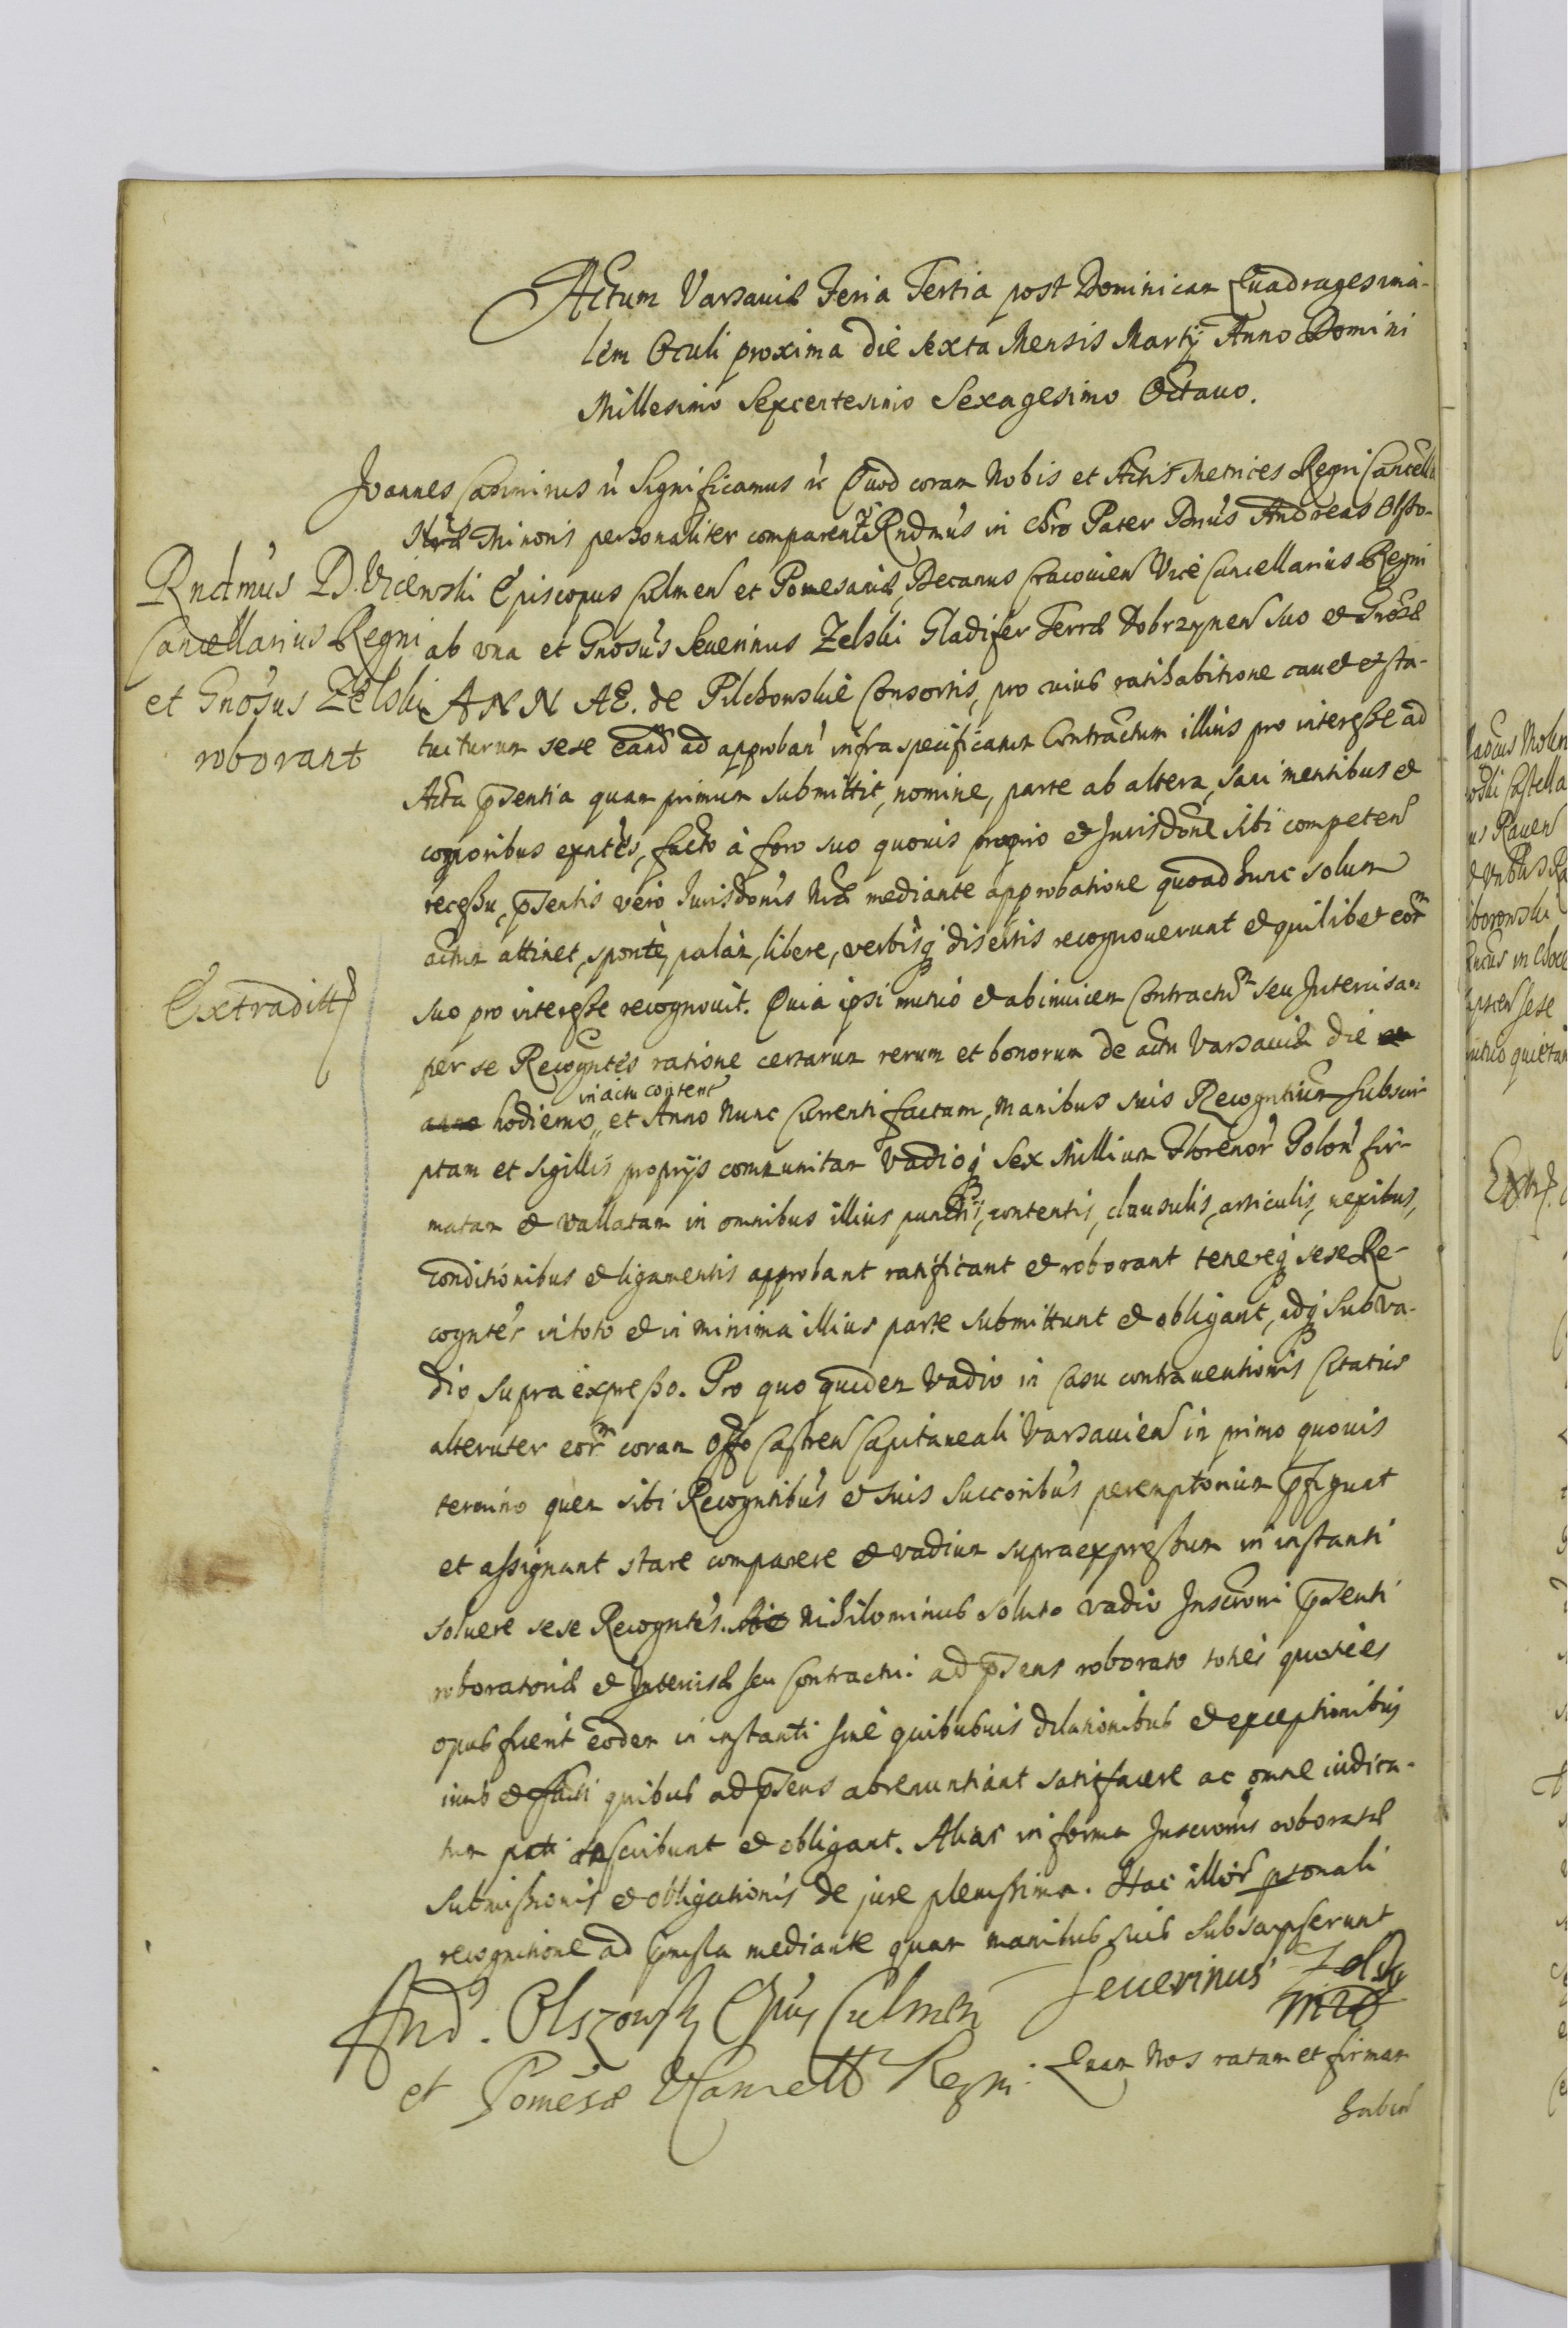 Actum Varsaviæ Feria Tertia post Dominicam Quadragesima-
lem Oculi proxima die sexta Mensis Martij Anno Domini
Millesimo Sexcentesimo Sexagesimo Octauo.
Joannes Casimirus &c Significamus &c Quod coram Nobis et Actis Metrices Regni Cancell
Nræ Minoris personaliter comparen Rndmus in Chro Pater Dnus Andreas Olszo-
Rndmus D. Vice
wski Episcopus Culmen et Pomesaniæ, Decanus Cracouien Vice Cancellarius Regni
Cancellarius Regni
ab vna et Gnosus Seuerinus Zelski Gladifer Terræ Dobrzynen suo et Gnosæ
et Gnosus Zelski
ANNAE. de Pilchowskie Consortis, pro cuius ratihabitione cauet et sta-
roborant
tuiturum sese eand ad approban infraspecificatum Contractum illius pro interesse ad
Acta pñsentia quam primum submittit, nomine, parte ab altera, sani mentibus et
corporibus exntes, facto à foro suo quouis proprio et Jurisdone sibi competen
recessu, pñsentis vero Jurisdonis Nræ mediante approbatione quoad hunc solum
actum attinet, sponte, palàm, libere, verbisq disertis recognouerunt et quilibet eorm
Extradittſ
suo pro interesse recognouit. Quia ipsi mutuo et ab inuicem Contractum seu Intercisam
per se Recogntes ratione certarum rerum et bonorum de actu Varsauiæ die
in actu content
hodierno, et Anno nunc Currenti factam, manibus suis Recogntium subscri-
ptam et sigillis proprijs communitam Vadioq Sex Millium Florenor Polon fir-
matam et vallatam in omnibus illius punctis, contentis, clausulis, articulis, nexibus,
conditionibus et ligamentis approbant ratificant et roborant tenereq sese Re-
cogntes in toto et in minima illius parte submittunt et obligant, idq sub va-
dio supra expresso. Pro quo quidem vadio in casu contrauentionis Citatus
alteruter eorm coram Offo Castren Capitaneali Varsauien in primo quouis
termino quem sibi Recogntibus et suis succoribus peremptorium pfigunt
et assignant stare comparere et vadium supraexpressum in instanti
soluere sese Recogntes. Nihilominus soluto vadio Inscroni pñsenti
roboratoriæ et Intercisæ seu Contractui ad pñsens roborato toties quoties
opus fuerit eodem in instanti sine quibusuis dilationibus et exceptionibus
iuris et facti quibus ad pñsens abrenuntiant satisfacere ac omne iudica-
tum pati inscribunt et obligant. Alias in forma Inscronis roboratæ
submissionis et obligationis de jure plenissima. Hac illor psonali
recognitione ad pmissa mediante quam manibus suis subscripserunt
And. Olszowski Epus Culmen
Seuerinus Zelsky
mp
et Pomesæ VCancell Regni.
Quam Nos ratam et firmam
haben